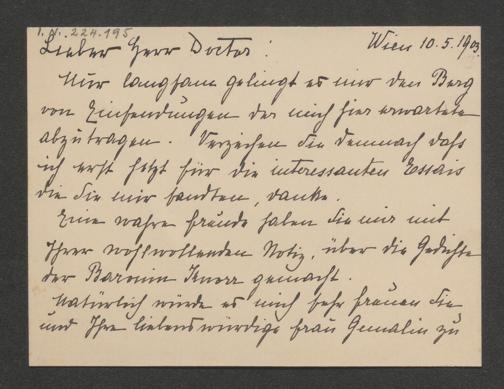 I.N. 224.195
Lieber Herr Doctor! Wien 10.5.1903.
Nur langsam gelingt es mir den Berg
von Einsendungen der mich hier erwartete
abzutragen. Verzeihen Sie demnach dafs
ich erst jetzt für die interessanten Essais
die Sie mir sandten, danke.
Eine wahre Freude haben Sie mir mit
Ihrer wohlwollenden Notiz, über die Gedichte
der Baronin Knorr gemacht.
Natürlich würde es mich sehr freuen Sie
und Ihre liebenswürdige Frau Gemalin zu